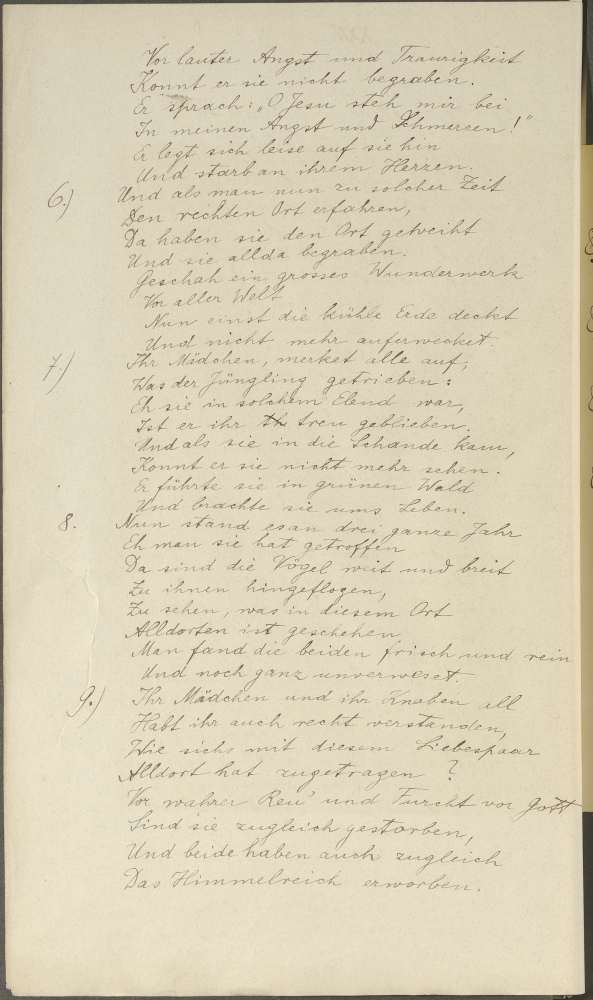 Vor lauter Angst und Traurigkeit
Konnt er sie nicht begraben.
Er sprach: „O Jesu steh mir bei
In meinen Angst und Schmerzen!"
Er legt sich leise auf sie hin
Und starb an ihrem Herzen.
6.) Und als man nun zu solcher Zeit
Den rechten Ort erfahren,
Da haben sie den Ort geweiht
Und sie allda begraben.
Geschah ein grosses Wunderwerk
Vor aller Welt
Nun einst die kühle Erde deckt
Und nicht mehr auferwecket.
7.) Ihr Mädchen, merket alle auf,
Was der Jüngling getrieben:
Eh sie in solchem Elend war,
Ist er ihr treu geblieben.
Und als sie in die Schande kam,
Konnt er sie nicht mehr sehen.
Er führte sie in grünen Wald
Und brachte sie ums Leben.
8. Nun stand es an drei ganze Jahr
Eh man sie hat getroffen
Da sind die Vögel weit und breit
Zu ihnen hingeflogen,
Zu sehen, was in diesem Ort
Alldorten ist geschehen,
Man fand die beiden frisch und rein
Und noch ganz unverweset.
9.) Ihr Mädchen und ihr Knaben all
Habt ihr auch recht verstanden,
Wie sichs mit diesem Liebespaar
Alldort hat zugetragen?
Vor wahrer Reu' und Furcht vor Gott
Sind sie zugleich gestorben,
Und beide haben auch zugleich
Das Himmelreich erworben.